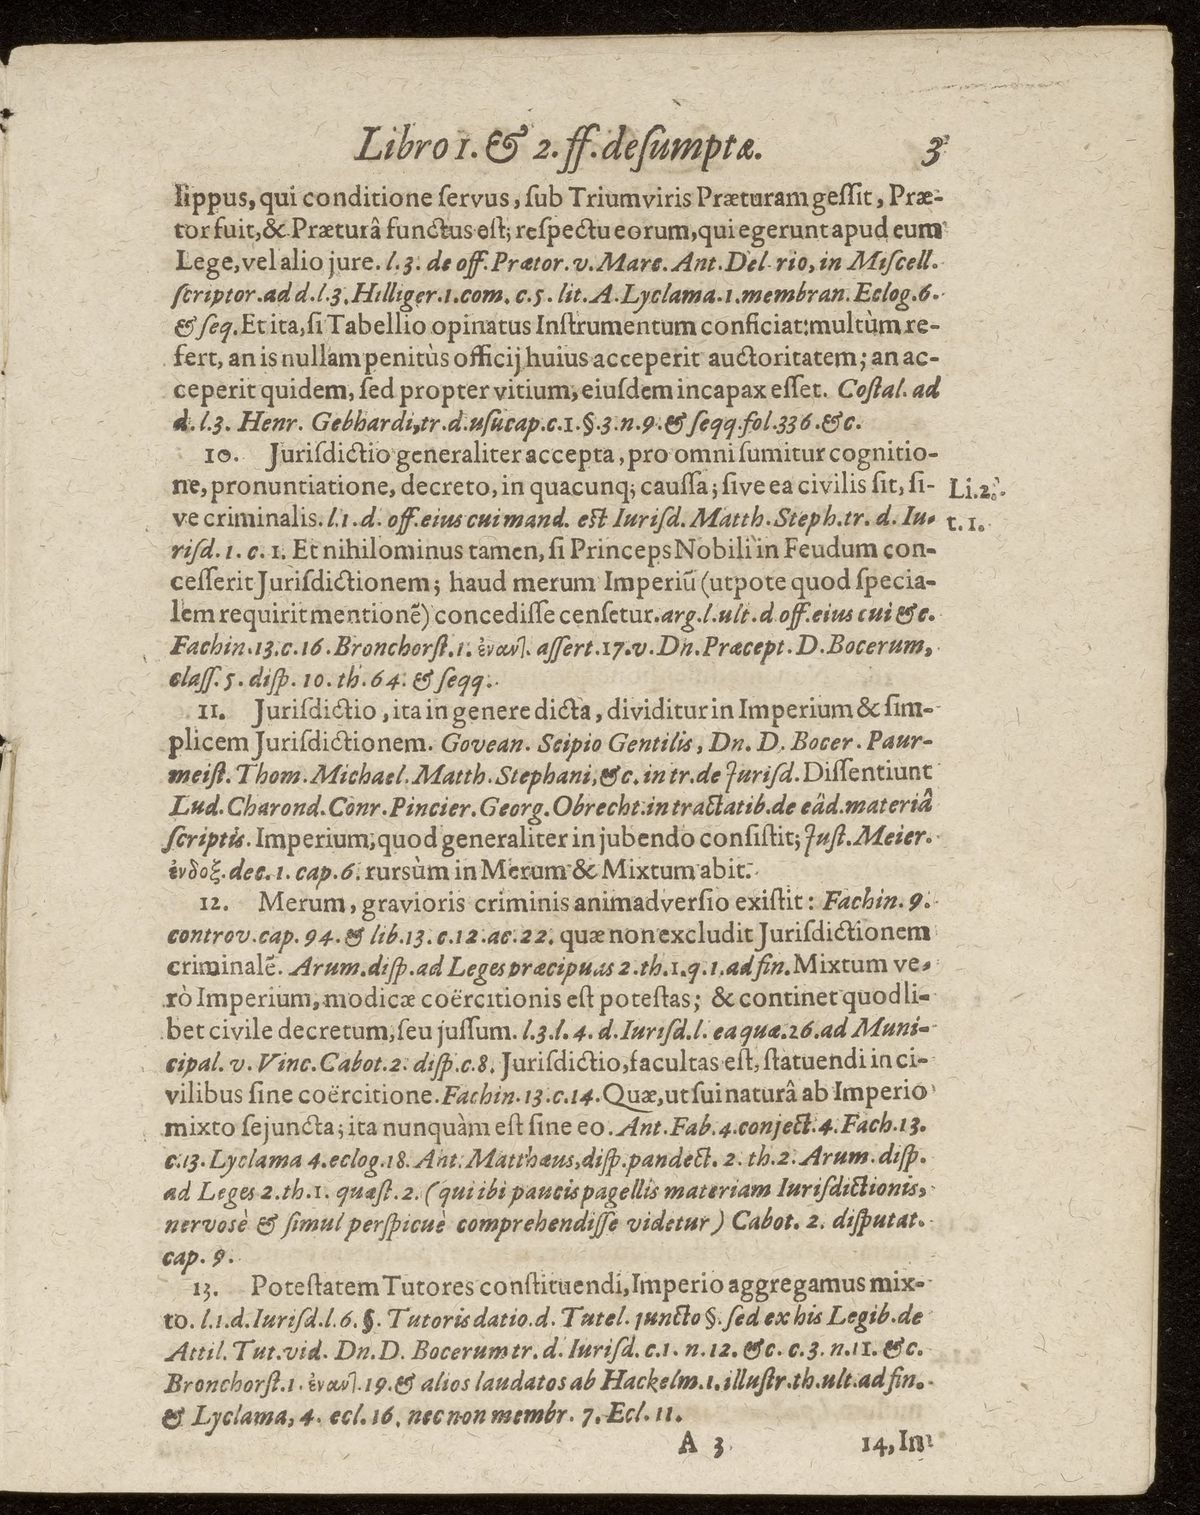 Libro 1. & 2. ff. deſumptæ. 3
lippus, qui conditione ſervus, ſub Triumviris Præturam geſſit, Præ-
tor fuit, & Præturâ functus eſt; reſpectu eorum, qui egerunt apud eum
Lege, vel alio jure. l. 3. de off. Prætor. v. Marc. Ant. Del rio, in Miſcell.
ſcriptor. ad d. l. 3. Hilliger. 1. com. c. 5. lit. A. Lyclama. 1. membran. Eclog. 6.
& ſeq. Et ita, ſi Tabellio opinatus Inſtrumentum conficiat: multùm re-
fert, an is nullam penitùs officij huius acceperit auctoritatem; an ac-
ceperit quidem, ſed propter vitium, eiuſdem incapax eſſet. Coſtal. ad
d. l. 3. Henr. Gebhardi, tr. d. uſucap. c. 1. §. 3. n. 9. & ſeqq. fol. 336. &c.
10. Jurisdictio generaliter accepta, pro omni ſumitur cognitio-
ne, pronuntiatione, decreto, in quacunq; cauſſa; ſive ea civilis ſit, ſi- Li. 2.
ve criminalis. l. 1. d. off. eius cui mand. eſt Iuriſd. Matth. Steph. tr. d. Iu- t. 1.
riſd. 1. c. 1. Et nihilominus tamen, ſi Princeps Nobili in Feudum con-
ceſſerit Jurisdictionem; haud merum Imperiũ (utpote quod ſpecia-
lem requirit mentionẽ) conceдiſſe cenſetur. arg. l. ult. d off. eius cui &c.
Fachin. 13. c. 16. Bronchorſt. 1. ἐναντ. aſſert. 17. v. Dn. Præcept. D. Bocerum,
claſſ. 5. diſp. 10. th. 64. & ſeqq.
11. Jurisdictio, ita in genere dicta, dividitur in Imperium & ſim-
plicem Jurisdictionem. Govean. Scipio Gentilis, Dn. D. Bocer. Paur-
meiſt. Thom. Michael. Matth. Stephani, &c. in tr. de Juriſd. Diſſentiunt
Lud. Charond. Conr. Pincier. Georg. Obrecht. in tractatib. de eâd. materiâ
ſcriptis. Imperium, quod generaliter in jubendo conſiſtit; Juſt. Meier.
ἐνδοξ. dec. 1. cap. 6. rursùm in Merum & Mixtum abit.
12. Merum, gravioris criminis animadverſio exiſtit: Fachin. 9.
controv. cap. 94. & lib. 13. c. 12. ac. 22. quæ non excludit Jurisdictionem
criminalẽ. Arum. diſp. ad Leges præcipuas 2. th. 1. q. 1. ad fin. Mixtum ve-
rò Imperium, modicæ coërcitionis eſt poteſtas; & continet quodli-
bet civile decretum, ſeu juſſum. l. 3. l. 4. d. Iuriſd. l. ea quæ. 26. ad Muni-
cipal. v. Vinc. Cabot. 2. diſp. c. 8. Jurisdictio, facultas eſt, ſtatuendi in ci-
vilibus ſine coërcitione. Fachin. 13. c. 14. Quæ, ut ſui naturâ ab Imperio
mixto ſejuncta; ita nunquàm eſt ſine eo. Ant. Fab. 4. conject. 4. Fach. 13.
c. 13. Lyclama 4. eclog. 18. Ant. Matthæus, diſp. pandect. 2. th. 2. Arum. diſp.
ad Leges 2. th. 1. quæſt. 2. (qui ibi paucis pagellis materiam Iurisdictionis,
nervosè & ſimul perſpicuè comprehendiſſe videtur) Cabot. 2. diſputat.
cap. 9.
13. Poteſtatem Tutores conſtituendi, Imperio aggregamus mix-
to. l. 1. d. Iuriſd. l. 6. §. Tutoris datio. d. Tutel. juncto §. ſed ex his Legib. de
Attil. Tut. vid. Dn. D. Bocerum tr. d. Iuriſd. c. 1. n. 12. &c. c. 3. n. 11. &c.
Bronchorſt. 1. ἐναντ. 19. & alios laudatos ab Hackelm. 1. illuſtr. th. ult. ad fin.
& Lyclama, 4. ecl. 16. nec non membr. 7. Ecl. 11.
A 3 14, Im